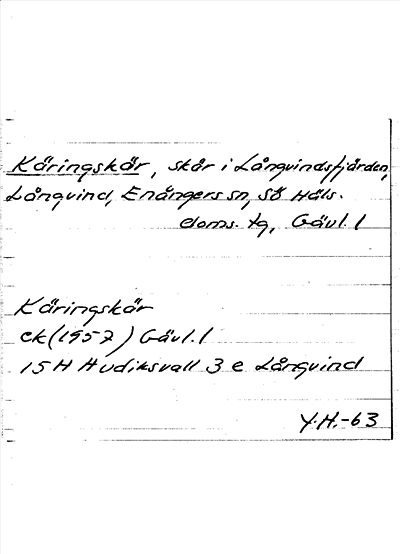 Käringskär, skär i Långvindsfjärden,
Långvind, Enångers sn, Sö Häls.
doms. tg, Gävl. l
Käringskär
ek (1957) Gävl. l
15H Hudiksvall 3 e Långvind
Y.H.-63